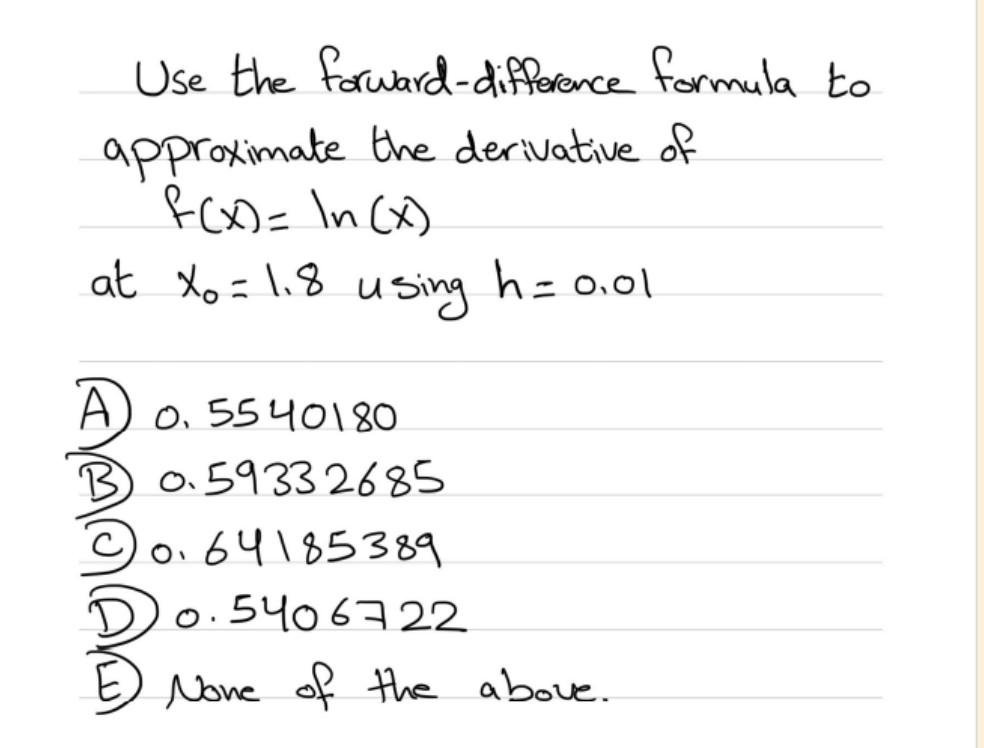 Use the forward-difference formula to
approximate the derivative of
f(x) = ln(x)
at x₀ = 1.8 using h = 0.01
A) 0.5540180
B) 0.59332685
C) 0.64185389
D) 0.5406722
E) None of the above.